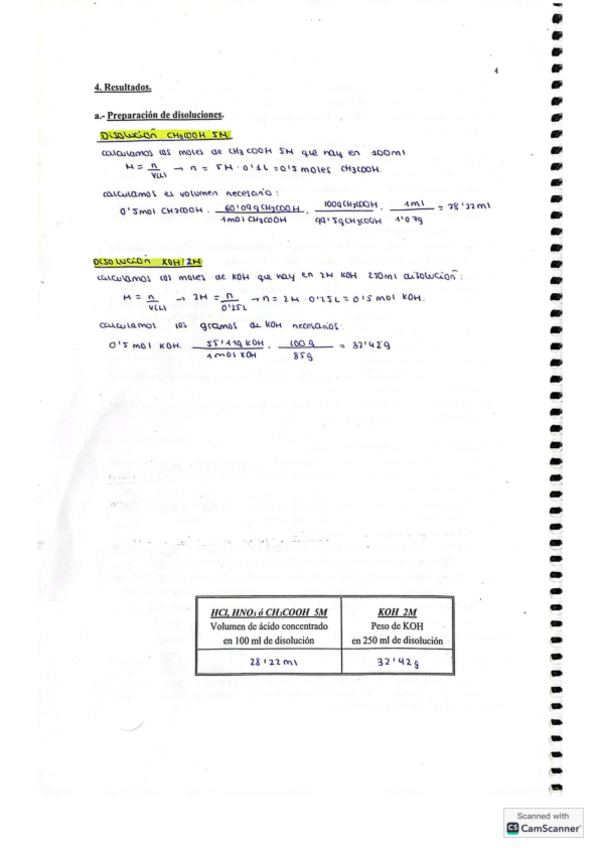 4
4. Resultados.
a.- Preparación de disoluciones.
DISOLUCIÓN CH3COOH 5M
calculamos los moles de CH3COOH 5M que hay en 100ml
M = n/V(L) → n = 5M · 0'1L = 0'5 moles CH3COOH.
calculamos el volumen necesario:
0'5mol CH3COOH · 60'09g CH3COOH/1mol CH3COOH · 100g CH3COOH/99'5g CH3COOH · 1ml/1'07g = 28'22ml
DISOLUCIÓN KOH 2M
calculamos los moles de KOH que hay en 2M KOH 250ml disolución:
M = n/V(L) → 2M = n/0'25L → n = 2M · 0'25L = 0'5 mol KOH.
calculamos los gramos de KOH necesarios:
0'5 mol KOH. 55'119 KOH/1 mol KOH · 100g/85g = 32'42g
HCl, HNO3 ó CH3COOH 5M
Volumen de ácido concentrado
en 100 ml de disolución
KOH 2M
Peso de KOH
en 250 ml de disolución
28'22ml
32'42g
Scanned with
CS CamScanner